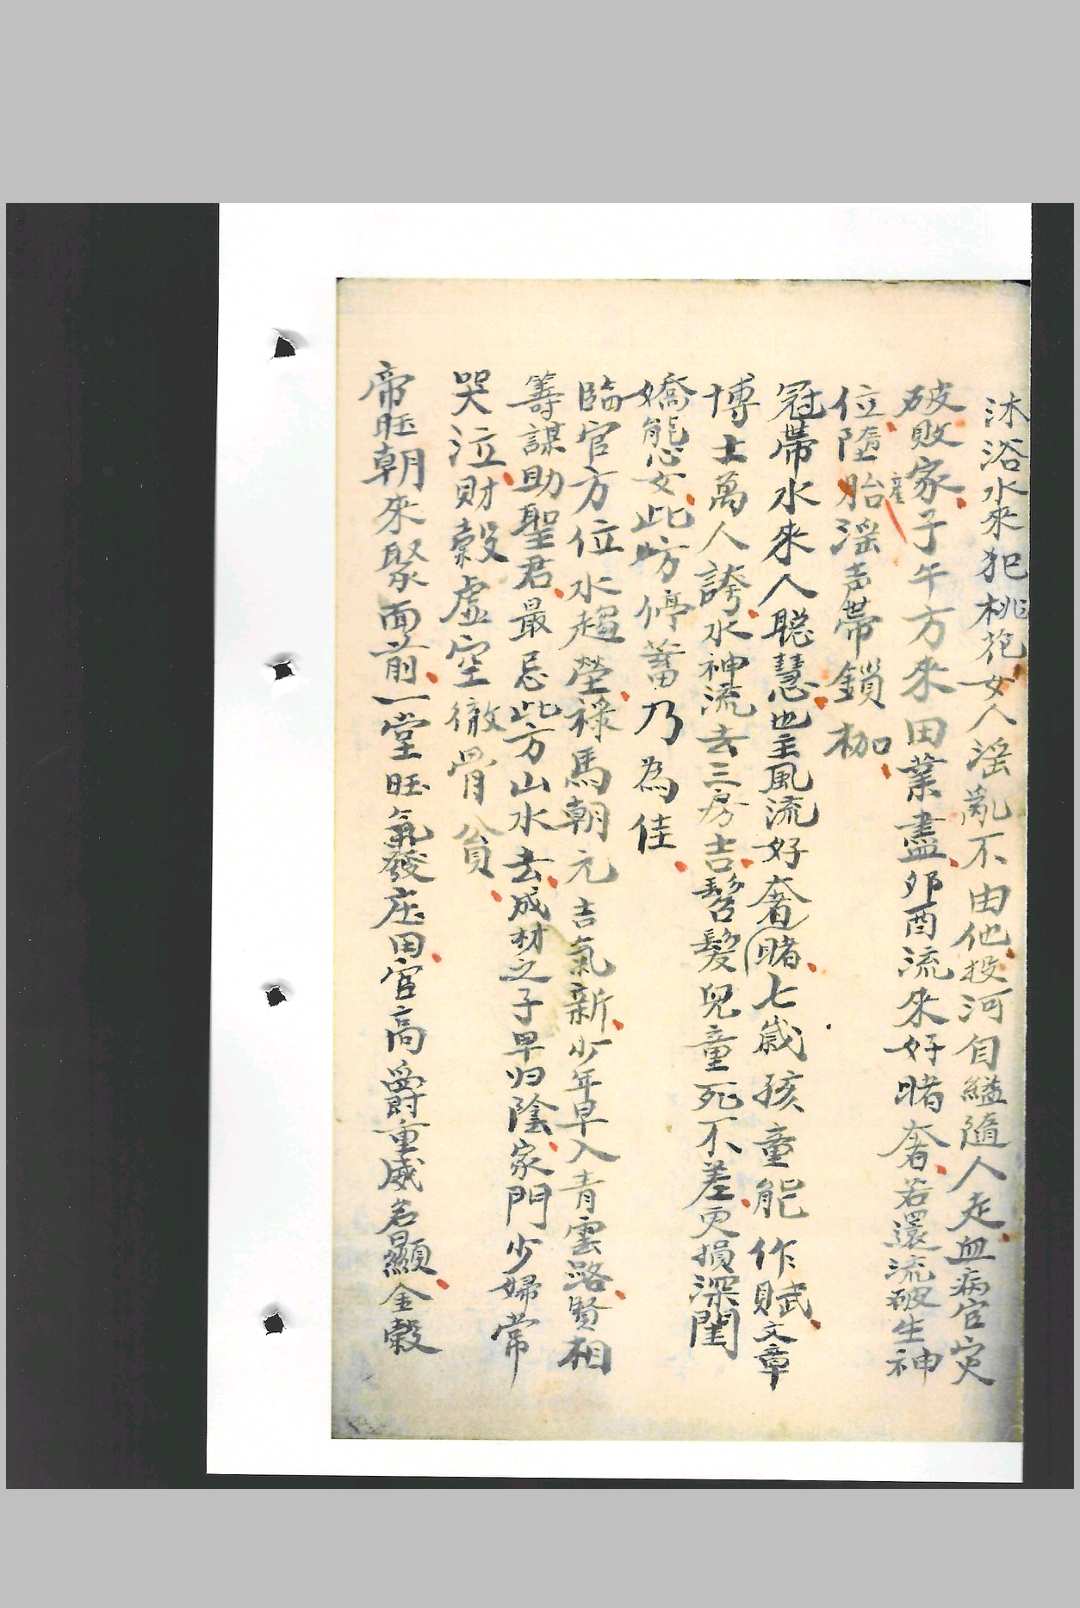 沐浴水來犯桃花女人淫亂不由他投河自縊隨人走血病官灾
破敗家子午方來田業盡卯酉流來好賭奢若還流破生神
位墮胎産淫声帶鎖枷
冠帶水來人聪慧也主風流好奢賭七歲孩童能作賦文章
博士萬人誇水神流去三房吉髫髮兒童死不差更損深閨
嬌態女此方停蓄乃為佳
臨官方位水趨塋祿馬朝元吉氣新少年早入青雲路賢相
籌謀助聖君最忌此方山水去成材之子早归陰家門少婦常
哭泣財穀虛空徹骨貧
帝旺朝來聚面前一堂旺氣發庄田官高爵重威名顯金穀